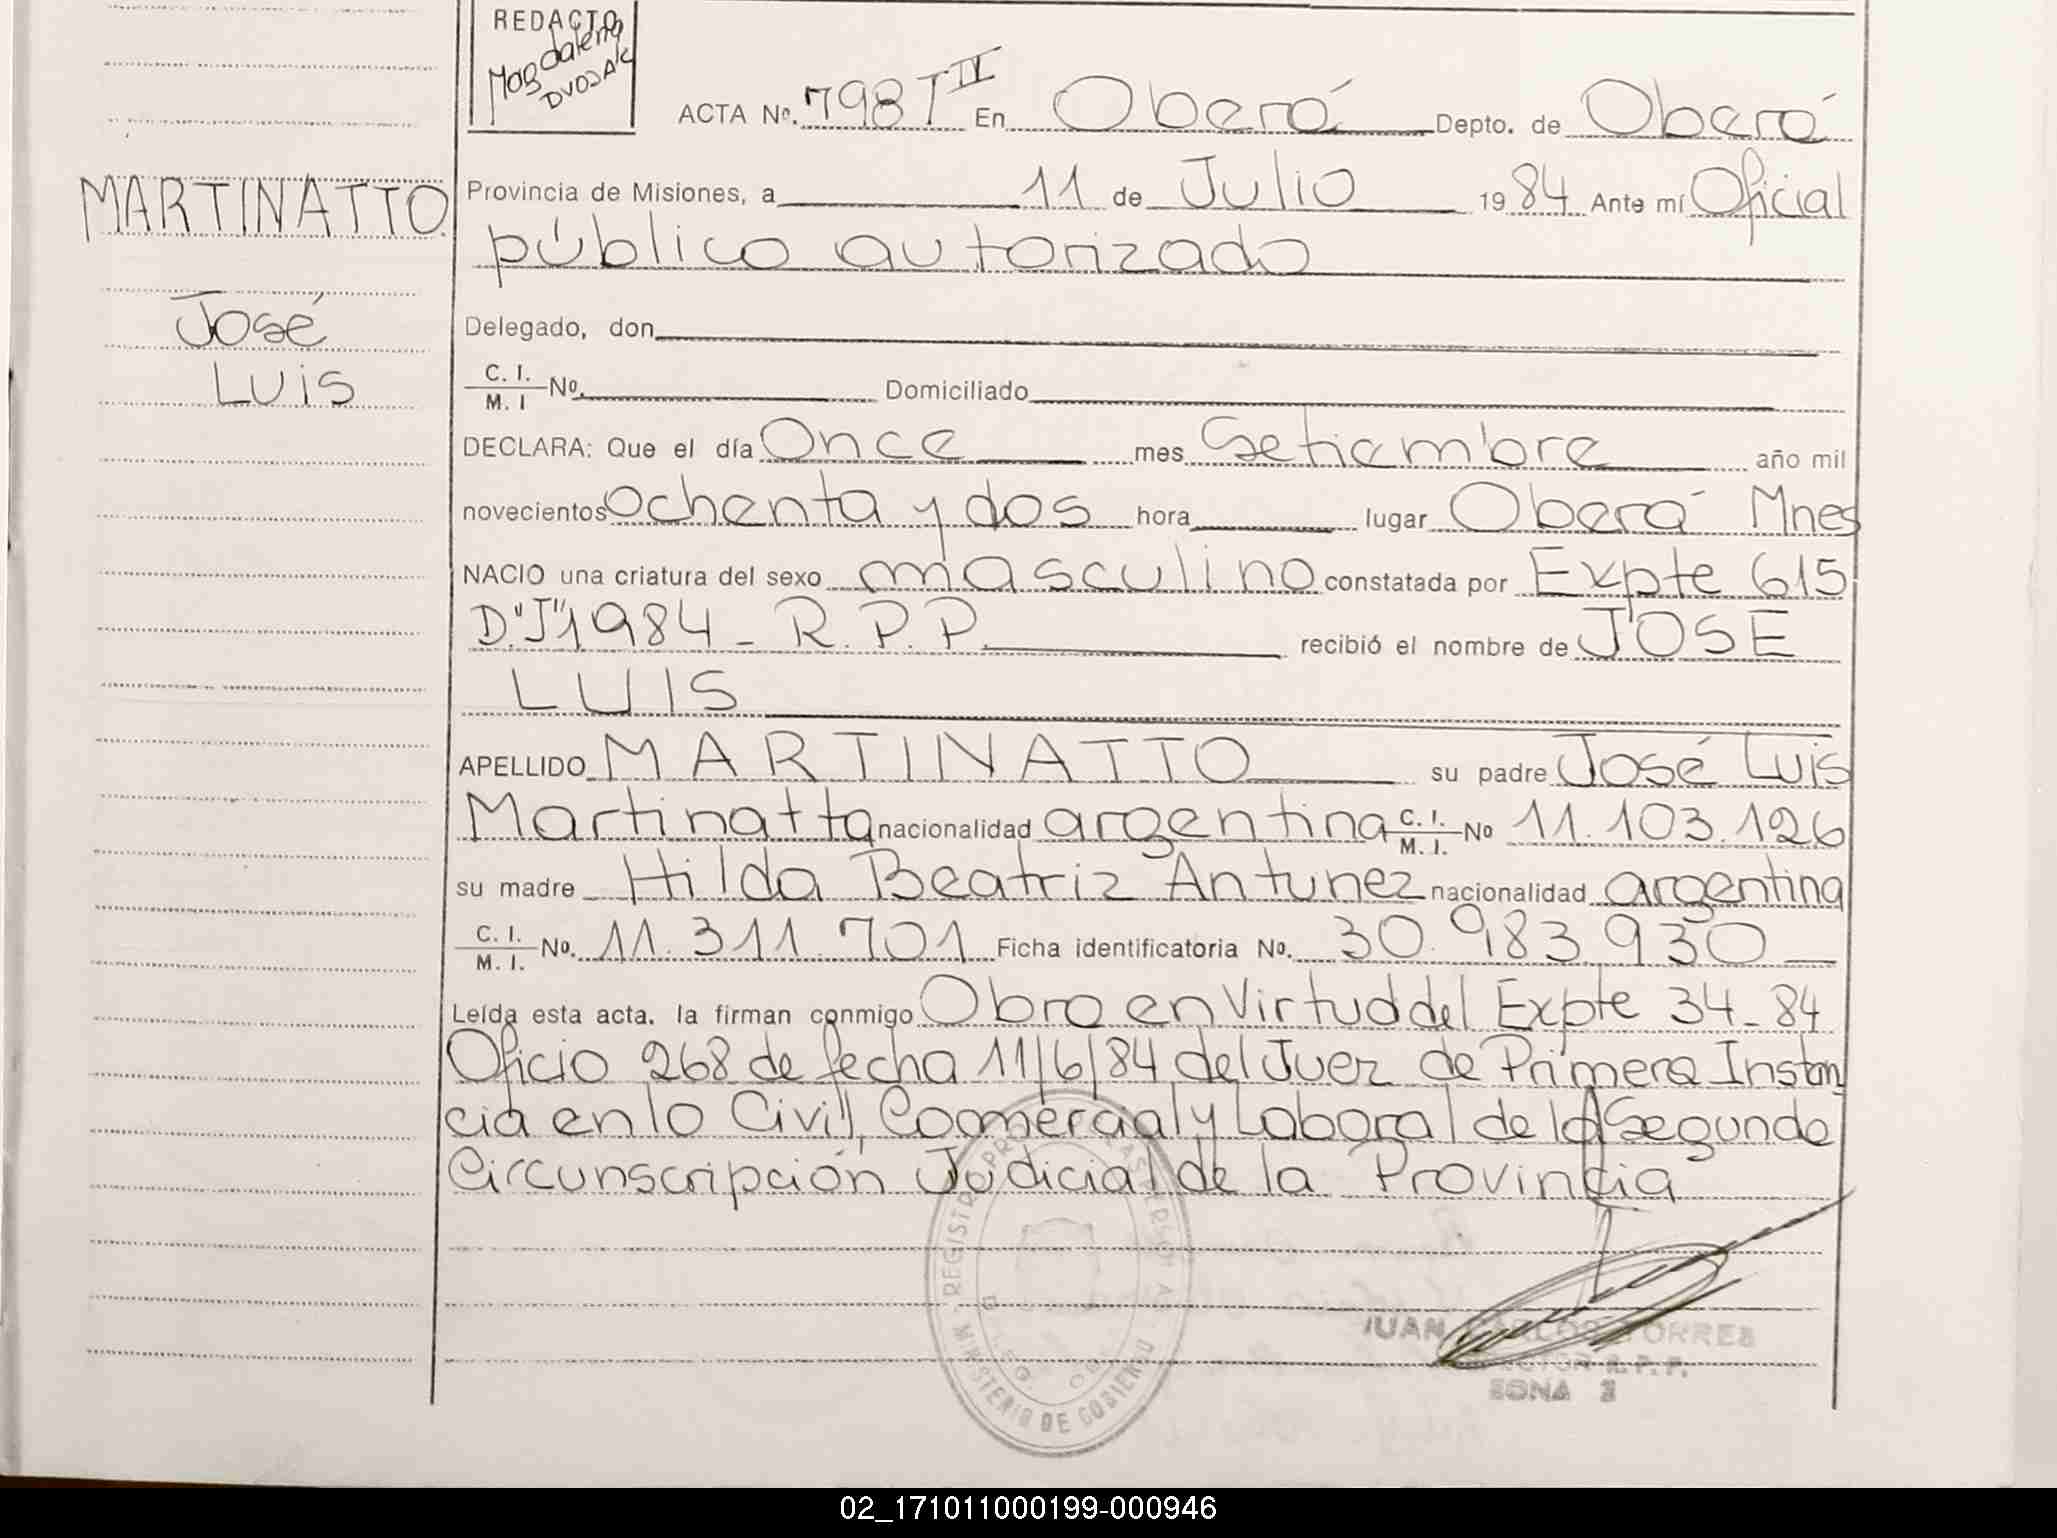 REDACTO
Magdalena
ACTA Nº. 798 T IV En Oberá Depto. de Oberá
MARTINATTO
Provincia de Misiones, a 11 de Julio 1984 Ante mí Oficial
público autorizado
José
Delegado, don
Luis
C. I.
M. I Nº. Domiciliado
DECLARA: Que el día Once mes Setiembre año mil
novecientos ochenta y dos hora lugar Oberá Mnes
NACIO una criatura del sexo masculino constatada por Expte 615
D."J"1984 - R.P.P. recibió el nombre de JOSE
LUIS
APELLIDO MARTINATTO su padre José Luis
Martinatto nacionalidad argentina C. I. M. I. Nº 11.103.126
su madre Hilda Beatriz Antunez nacionalidad argentina
C. I. M. I. Nº. 11.311.701 Ficha identificatoria Nº. 30.983.930
Leída esta acta. la firman conmigo Obro en Virtud del Expte 34-84
Oficio 268 de fecha 11/6/84 del Juez de Primera Instan
cia en lo Civil, Coomercial y Laboral de la Segunda
Circunscripción Judicial de la Provincia
MINISTERIO DE GOBIERNO
JUAN CARLOS TORRES
R. P. P.
ZONA 3
02_171011000199-000946